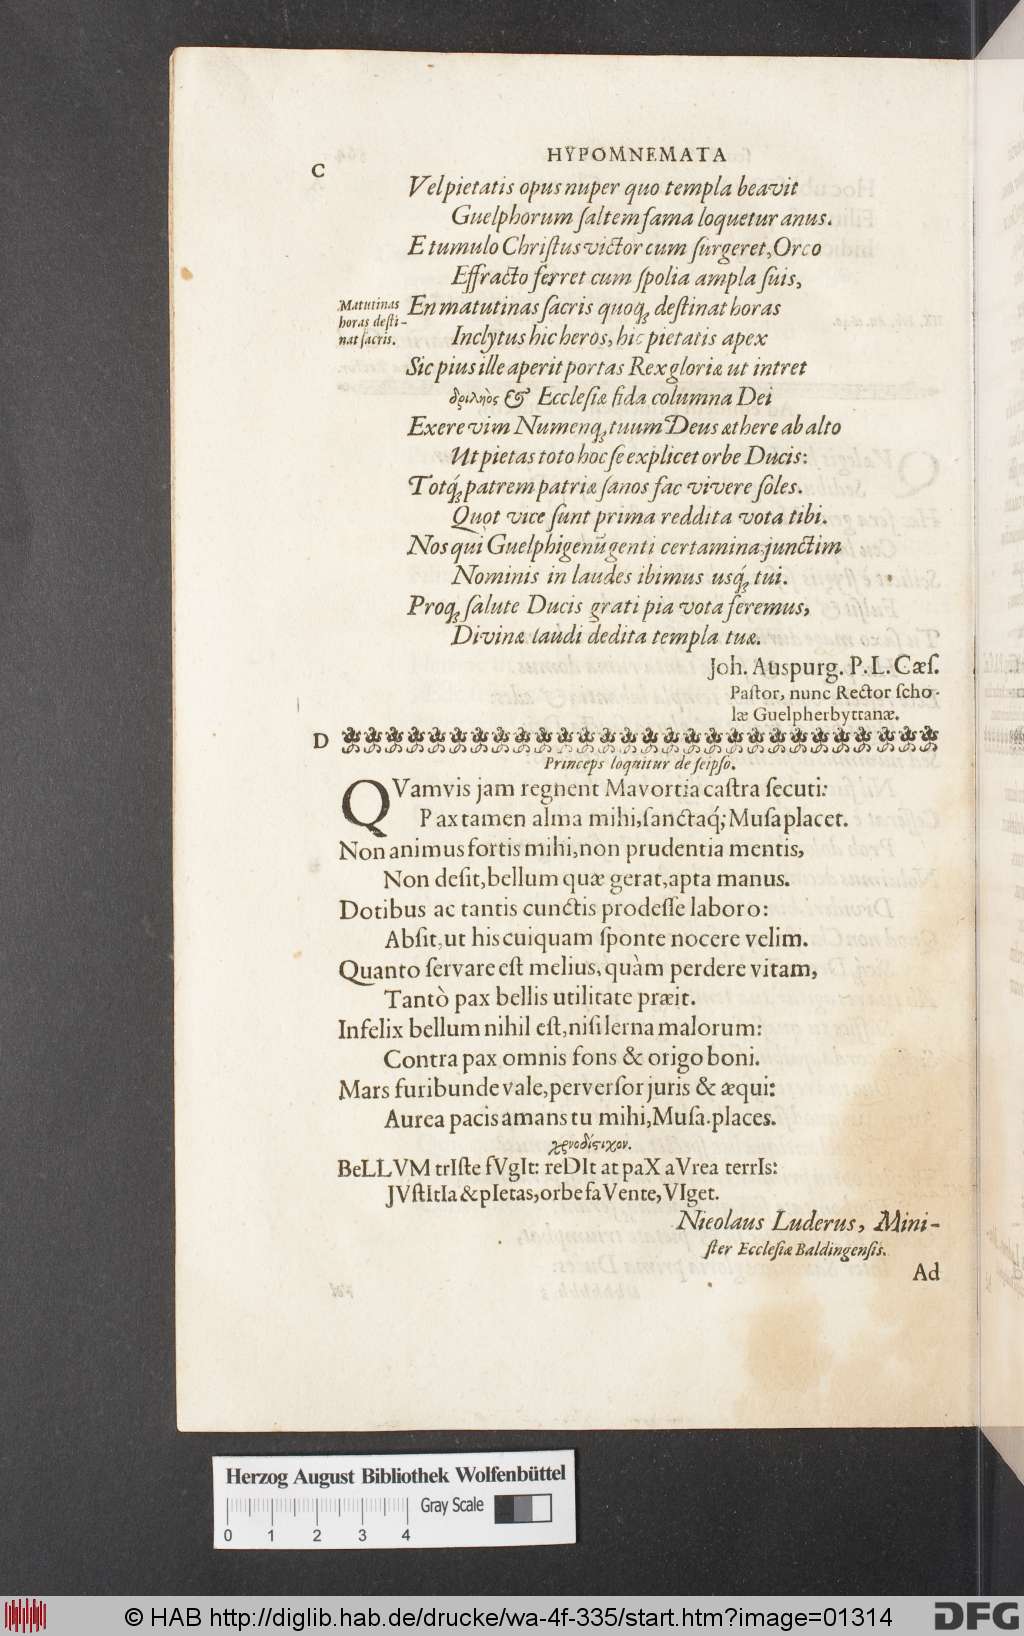 HYPOMNEMATA
C
Vel pietatis opus nuper quo templa beavit
Guelphorum ſaltem fama loquetur anus.
E tumulo Chriſtus victor cum ſurgeret, Orco
Effracto ferret cum ſpolia ampla ſuis,
Matutinas
horas deſti-
nat ſacris.
En matutinas ſacris quoq; deſtinat horas
Inclytus hic heros, hic pietatis apex
Sic pius ille aperit portas Rex gloriæ ut intret
& Eccleſiæ fida columna Dei
Exere vim Numenq; tuum Deus æthere ab alto
Ut pietas toto hoc ſe explicet orbe Ducis:
Totq́; patrem patriæ ſanos fac vivere ſoles.
Quot vice ſunt prima reddita vota tibi.
Nos qui Guelphigenûm genti certamina junctim
Nominis in laudes ibimus usq́; tui.
Proq; ſalute Ducis grati pia vota feremus,
Divinæ laudi dedita templa tuæ.
Joh. Auspurg. P. L. Cæſ.
Paſtor, nunc Rector ſcho-
læ Guelpherbyttanæ.
D
Princeps loquitur de ſeipſo.
QVamvis jam regnent Mavortia caſtra ſecuti:
Pax tamen alma mihi, ſanctaq́; Muſa placet.
Non animus fortis mihi, non prudentia mentis,
Non deſit, bellum quæ gerat, apta manus.
Dotibus ac tantis cunctis prodeſſe laboro:
Abſit, ut his cuiquam ſponte nocere velim.
Quanto ſervare eſt melius, quàm perdere vitam,
Tantò pax bellis utilitate præit.
Infelix bellum nihil eſt, niſi lerna malorum:
Contra pax omnis fons & origo boni.
Mars furibunde vale, perverſor juris & æqui:
Aurea pacis amans tu mihi, Muſa. places.
χρονοδίςιχον.
BeLLVM trIſte fVgIt: reDIt at paX aVrea terrIs:
JVſtItIa & pIetas, orbe faVente, VIget.
Nicolaus Luderus, Mini-
ſter Eccleſiæ Baldingenſis.
Ad
Herzog August Bibliothek Wolfenbüttel
Gray Scale
0 1 2 3 4
© HAB http://diglib.hab.de/drucke/wa-4f-335/start.htm?image=01314
DFG